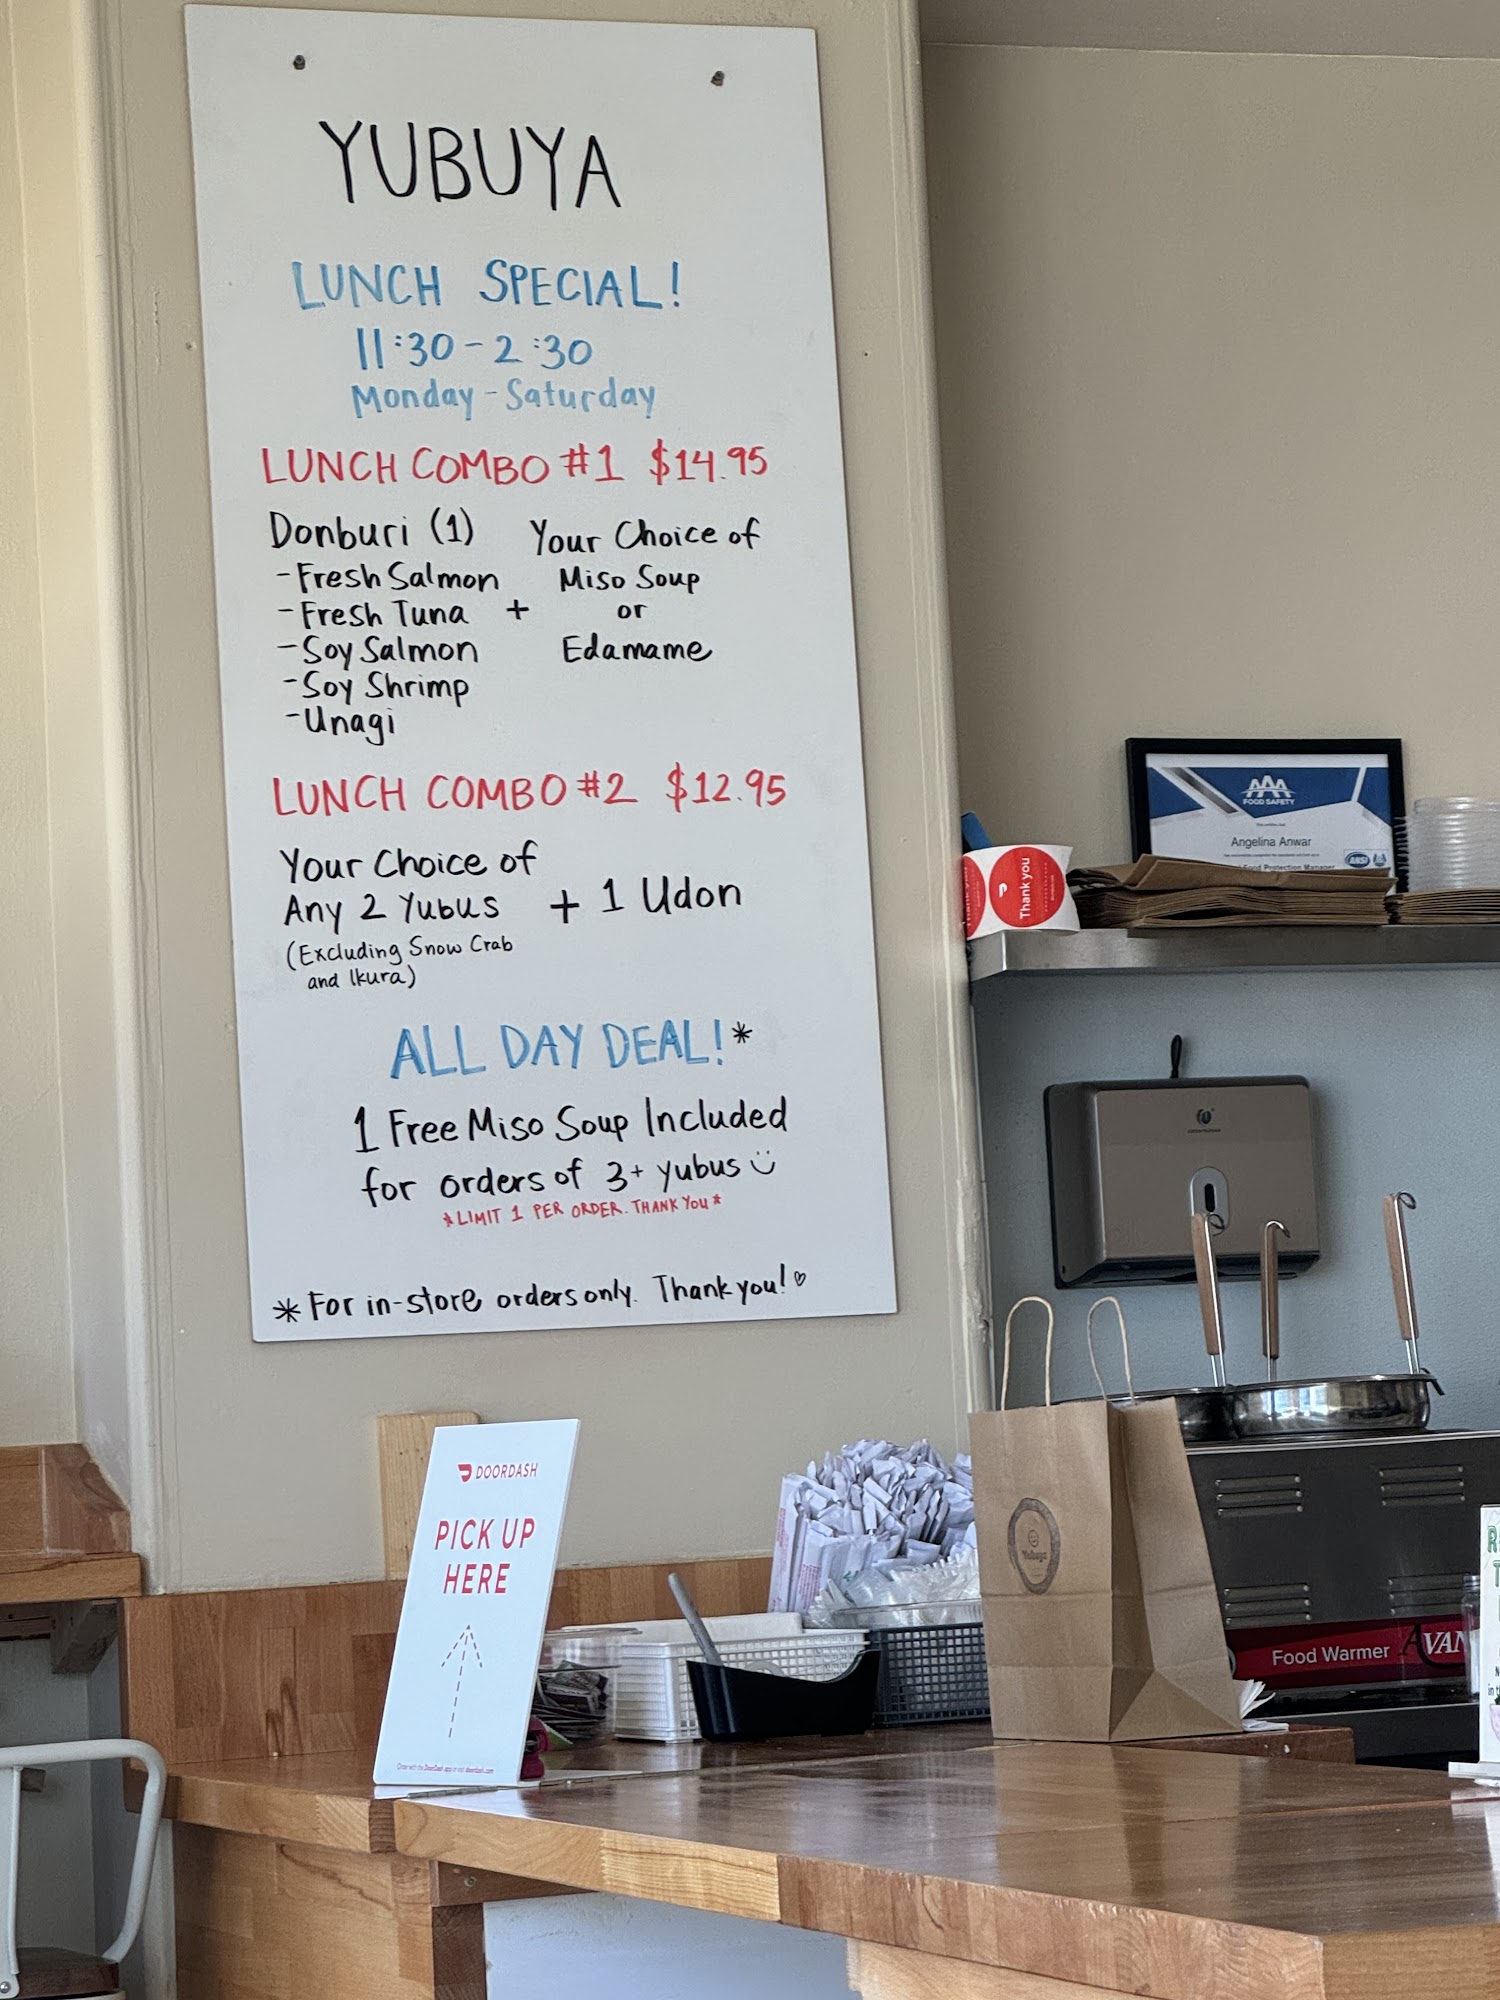 YUBUYA
LUNCH SPECIAL!
11:30-2:30
Monday-Saturday
LUNCH COMBO #1 $14.95
Donburi (1)
-Fresh Salmon
-Fresh Tuna
-Soy Salmon
-Soy Shrimp
-Unagi
+
Your Choice of
Miso Soup
or
Edamame
LUNCH COMBO #2 $12.95
Your Choice of
Any 2 Yubus
(Excluding Snow Crab
and Ikura)
+ 1 Udon
ALL DAY DEAL!*
1 Free Miso Soup Included
for orders of 3+ yubus
*LIMIT 1 PER ORDER. THANK YOU*
*For in-store orders only. Thank you!
FOOD SAFETY
Angelina Anwar
Food Protection Manager
ANSI
Thank you
DOORDASH
PICK UP
HERE
Order with the DoorDash app or visit doordash.com
Yubuya
Food Warmer AVAN